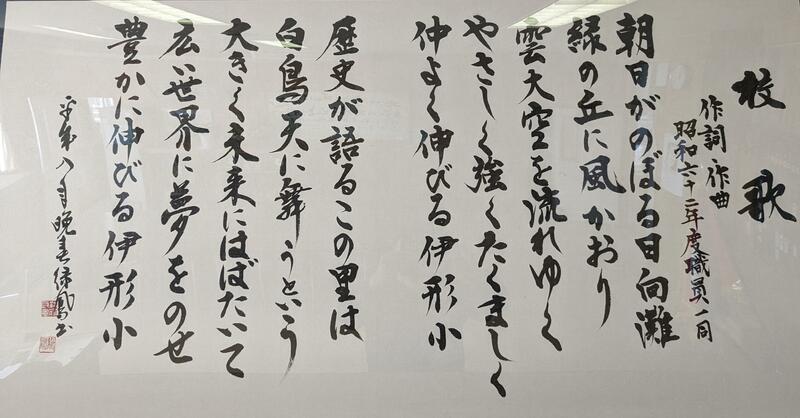 校歌
作詞 作曲
昭和六十二年度職員一同
朝日がのぼる日向灘
緑の丘に風かおり
雲大空を流れゆく
やさしく強くたくましく
仲よく伸びる伊形小
歴史が語るこの里は
白鳥天に舞うという
大きく未来にはばたいて
広い世界に夢をのせ
豊かに伸びる伊形小
晩春 緑鳳書